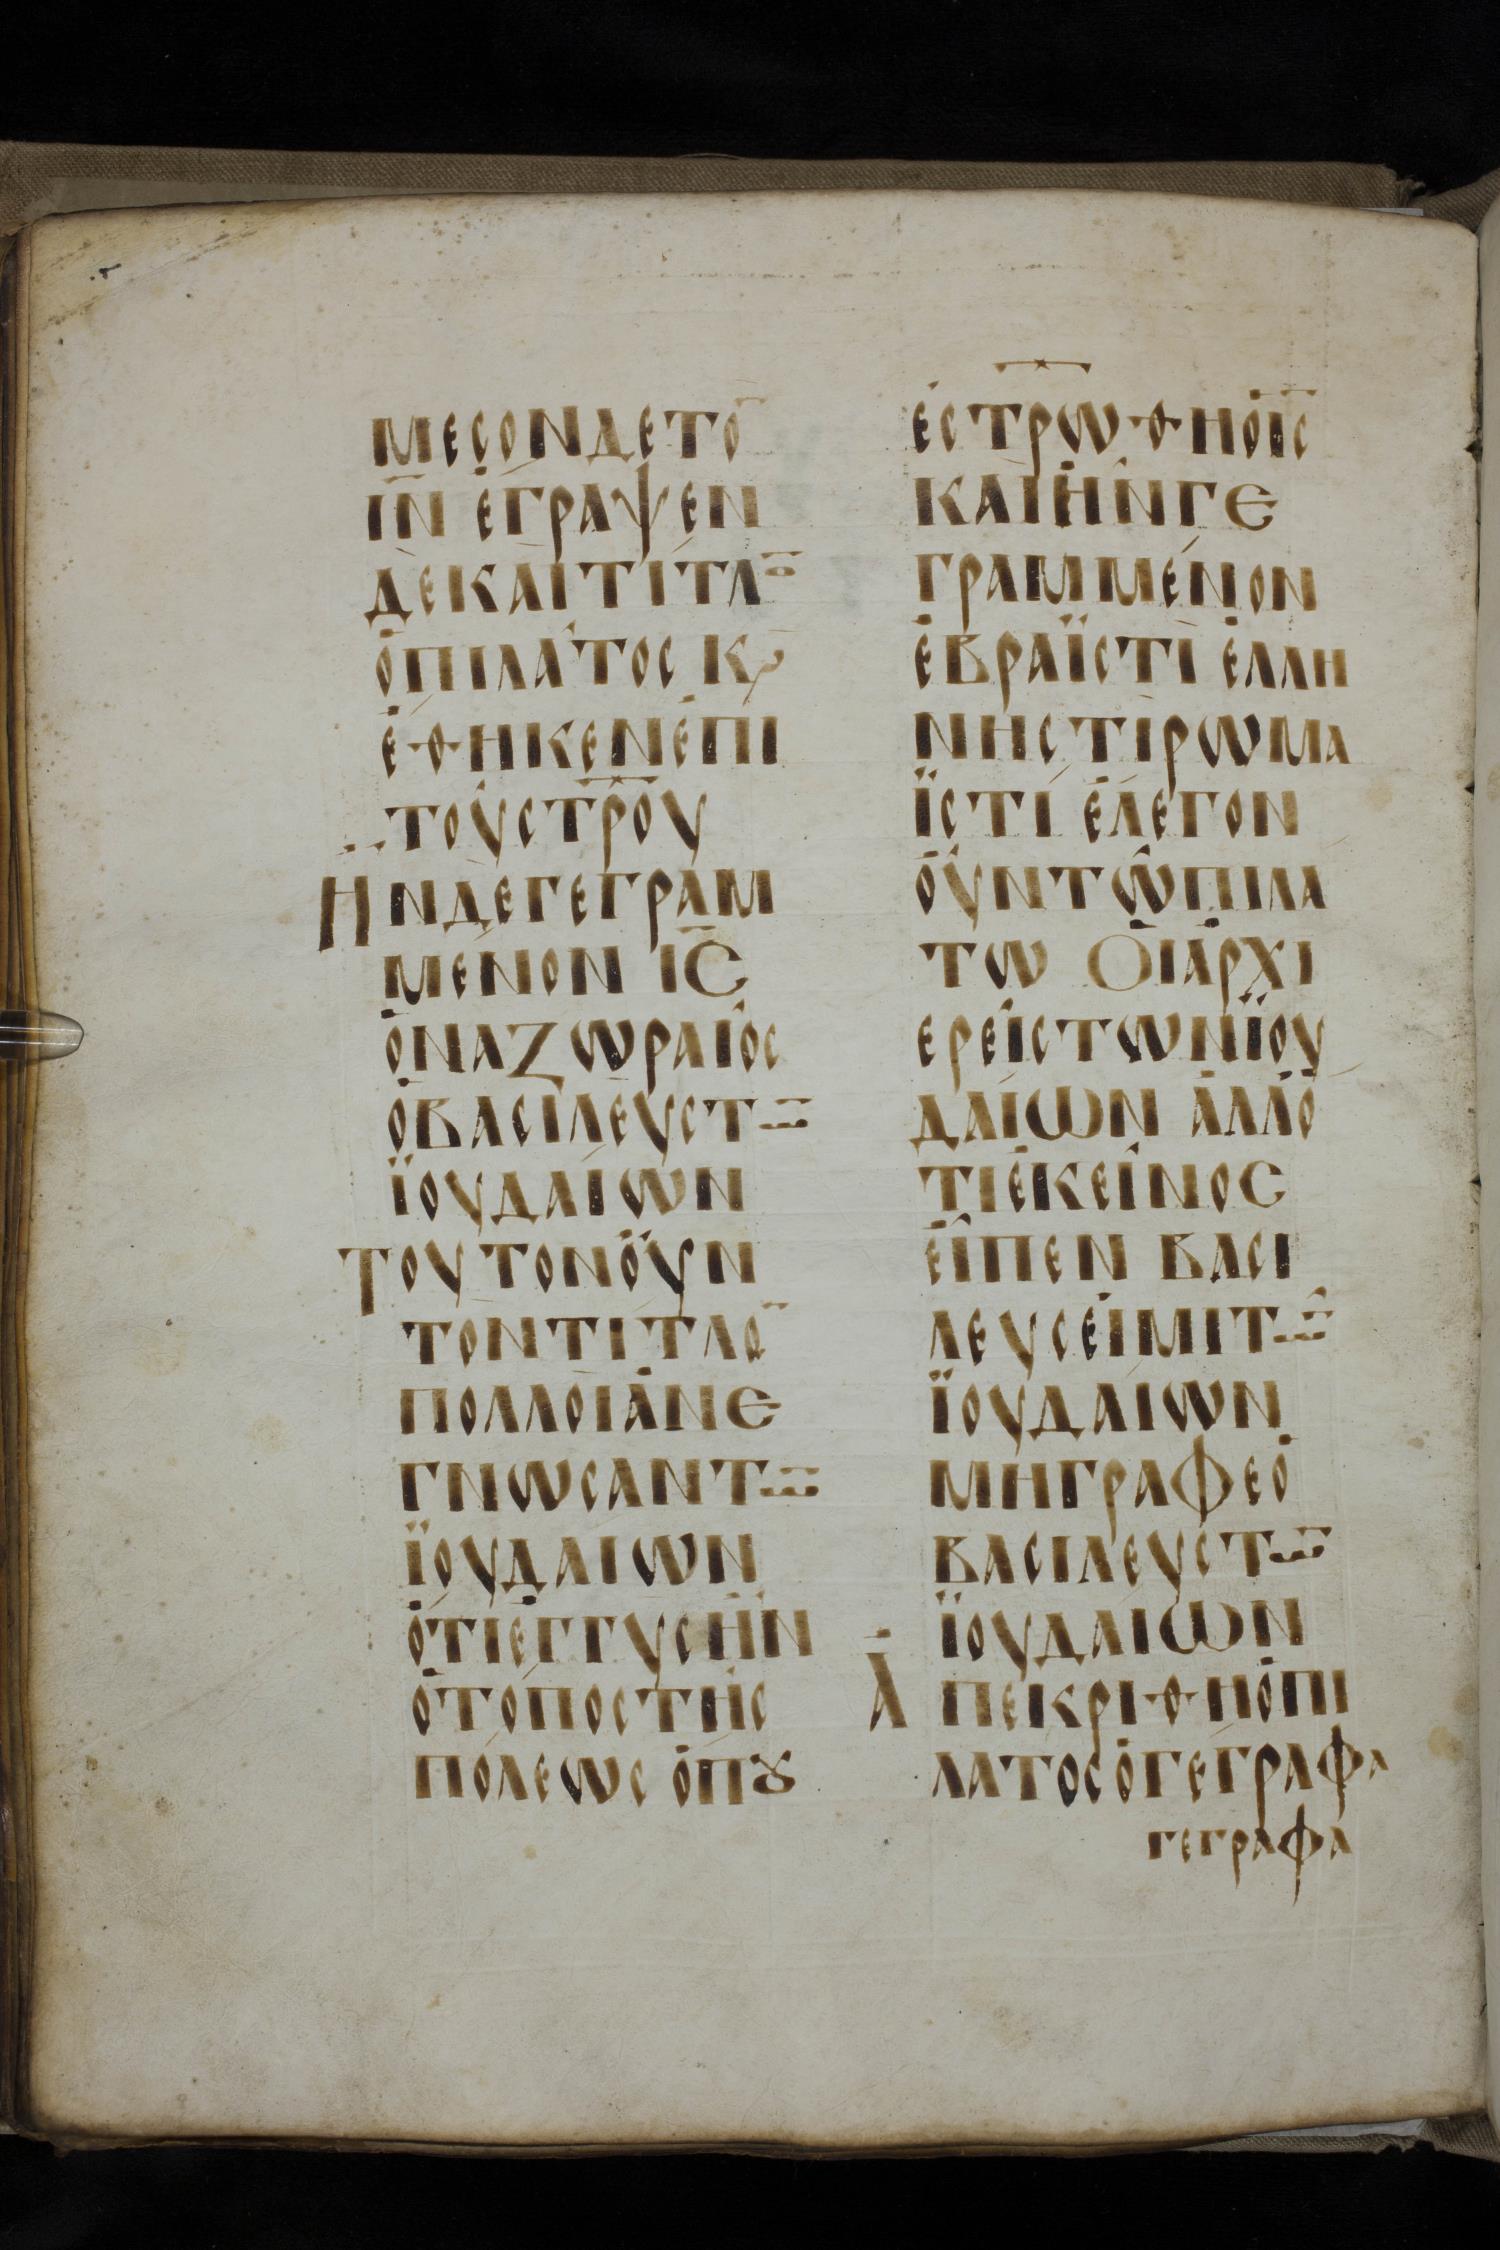 ΜΕCΟΝΔΕΤΟ̅
Ι̅Ν̅ ΕΓΡΑΨΕΝ
ΔΕΚΑΙΤΙΤΛΟ̅
ὉΠΙΛΑΤΟC Κϛ
ἘΘΗΚΕΝἘΠΙ
ΤΟΥC̅Τ̅Ρ̅ΟΥ
ΗΝΔΕΓΕΓΡΑΜ
ΜΕΝΟΝ Ι̅C̅
ὉΝΑΖΩΡΑΙΟC
ὉΒΑCΙΛΕΥCΤΩ̅
ΪΟΥΔΑΙΩΝ
ΤΟΥΤΟΝΟΥΝ
ΤΟΝΤΙΤΛΟ̅
ΠΟΛΛΟΙἈΝΕ
ΓΝΩCΑΝΤΩ̅
ΪΟΥΔΑΙΩΝ
ὉΤΙἘΓΓΥCΗΝ
ὉΤΟΠΟCΤΗC
ΠΟΛΕΩC ὉΠȢ
ἘCΤΡΩΘΗὉΙ̅C̅
ΚΑΙΗΝΓΕ
ΓΡΑΜΜΕΝΟΝ
ἙΒΡΑΪCΤΙ ἙΛΛΗ
ΝΗCΤΙΡΩΜΑ
ΪCΤΙ ἘΛΕΓΟΝ
ΟΥΝΤΩΠΙΛΑ
ΤΩ ΟἹἈΡΧΙ
ΕΡΕΙCΤΩΝΪΟΥ
ΔΑΙΩΝ ἈΛΛὉ
ΤΙἘΚΕΙΝΟC
ΕἸΠΕΝ ΒΑCΙ
ΛΕΥCΕἸΜΙΤΩ̅
ΪΟΥΔΑΙΩΝ
ΜΗΓΡΑΦΕὉ
ΒΑCΙΛΕΥCΤΩ̅
ΪΟΥΔΑΙΩΝ
ἈΠΕΚΡΙΘΗὉΠΙ
ΛΑΤΟCὉΓΕΓΡΑΦΑ
ΓΕΓΡΑΦΑ